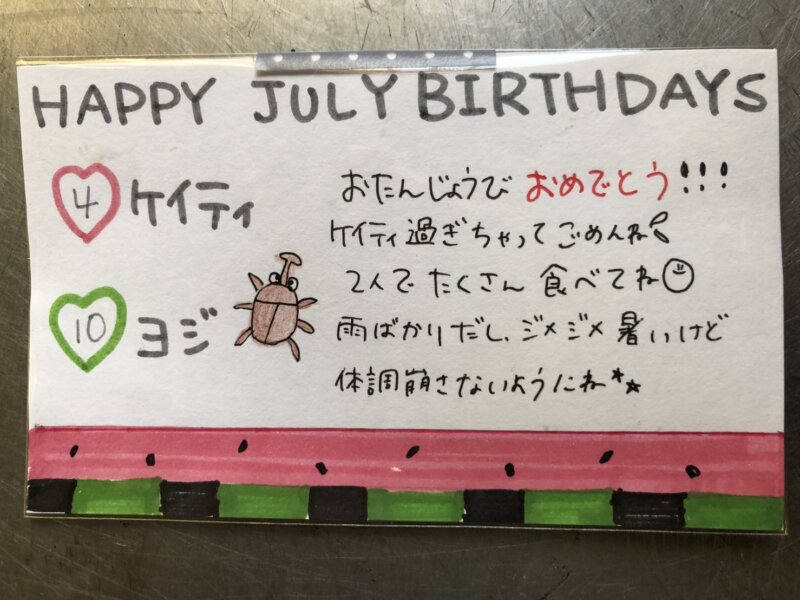 HAPPY JULY BIRTHDAYS
4 ケイティ
10 ヨジ
おたんじょうび おめでとう!!!
ケイティ過ぎちゃってごめんね
2人で たくさん 食べてね
雨ばかりだし、ジメジメ 暑いけど
体調崩さないようにね